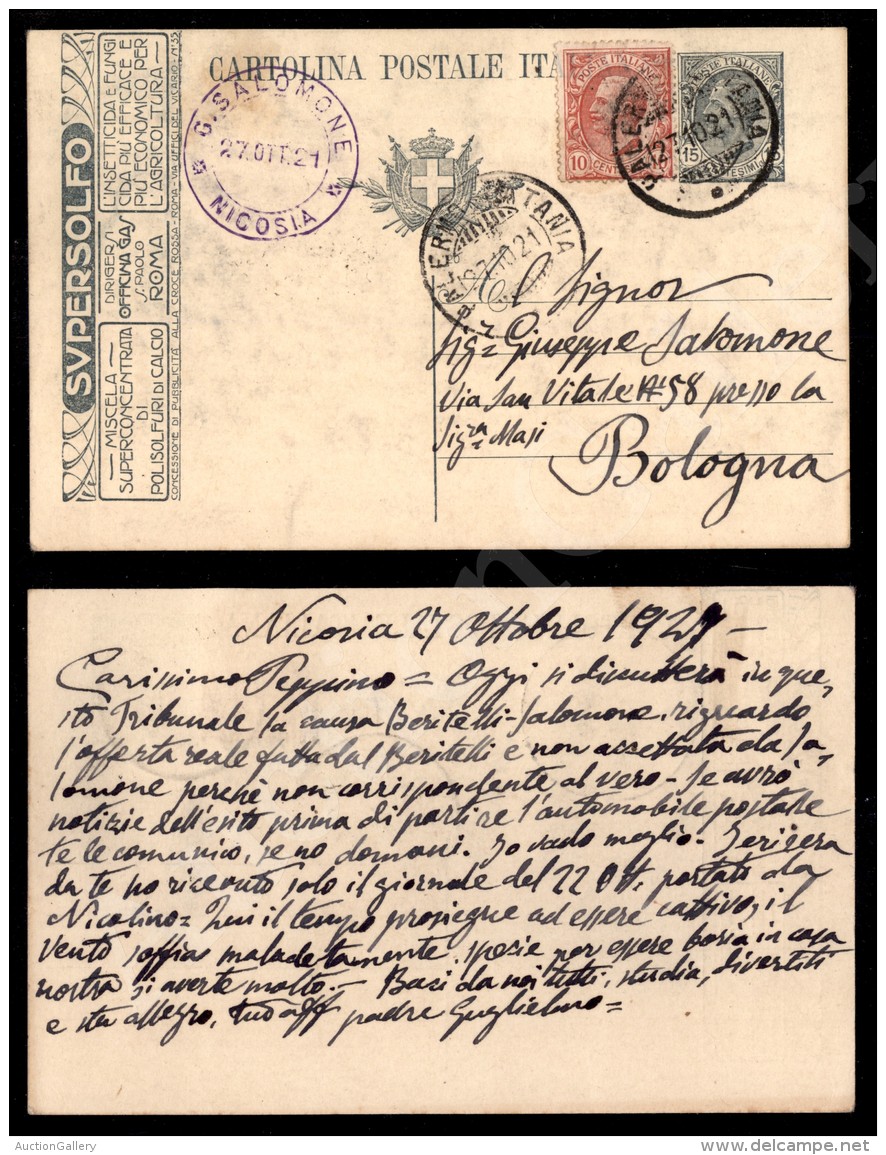 CARTOLINA POSTALE ITA
SVPERSOLFO
L'INSETTICIDA E FUNGI
CIDA PIÙ EFFICACE E
PIÙ ECONOMICO PER
L'AGRICOLTURA
DIRIGERSI
OFFICINA GAS
S. PAOLO
ROMA
MISCELA
SUPERCONCENTRATA
DI
POLISOLFURI DI CALCIO
CONCESSIONE DI PUBBLICITÀ ALLA CROCE ROSSA - ROMA - VIA UFFICI DEL VICARIO - N° 35
G. SALOMONE
27.OTT.21
NICOSIA
POSTE ITALIANE
10 CENT
POSTE ITALIANE
15 ESIMI 15
PALERMO TANIA
127.10.21
Al Signor
Sig. Giuseppe Salomone
Via San Vitale N° 58 presso la
Sig.ra Masi
Bologna
Nicosia 27 Ottobre 1921 —
Carissimo Peppino = Oggi si discuterà in que,
sto Tribunale la causa Beritelli-Salomone, riguardo
l'offerta reale fatta dal Beritelli e non accettata da Sa,
lomone perchè non corrispondente al vero - Se avrò
notizie dell'esito prima di partire l'automobile postale
te le comunico, se no domani. Io vado meglio. Ieri sera
da te ho ricevuto solo il giornale del 22 Ott. portato da
Nicolino = Qui il tempo prosiegue ad essere cattivo, il
vento soffia maladetamente, specie per essere in casa
nostra si averte molto. — Baci da noi tutti, studia, divertiti
e sta allegro, tuo aff padre Guglielmo =
AuctionGallery
delcampe.net